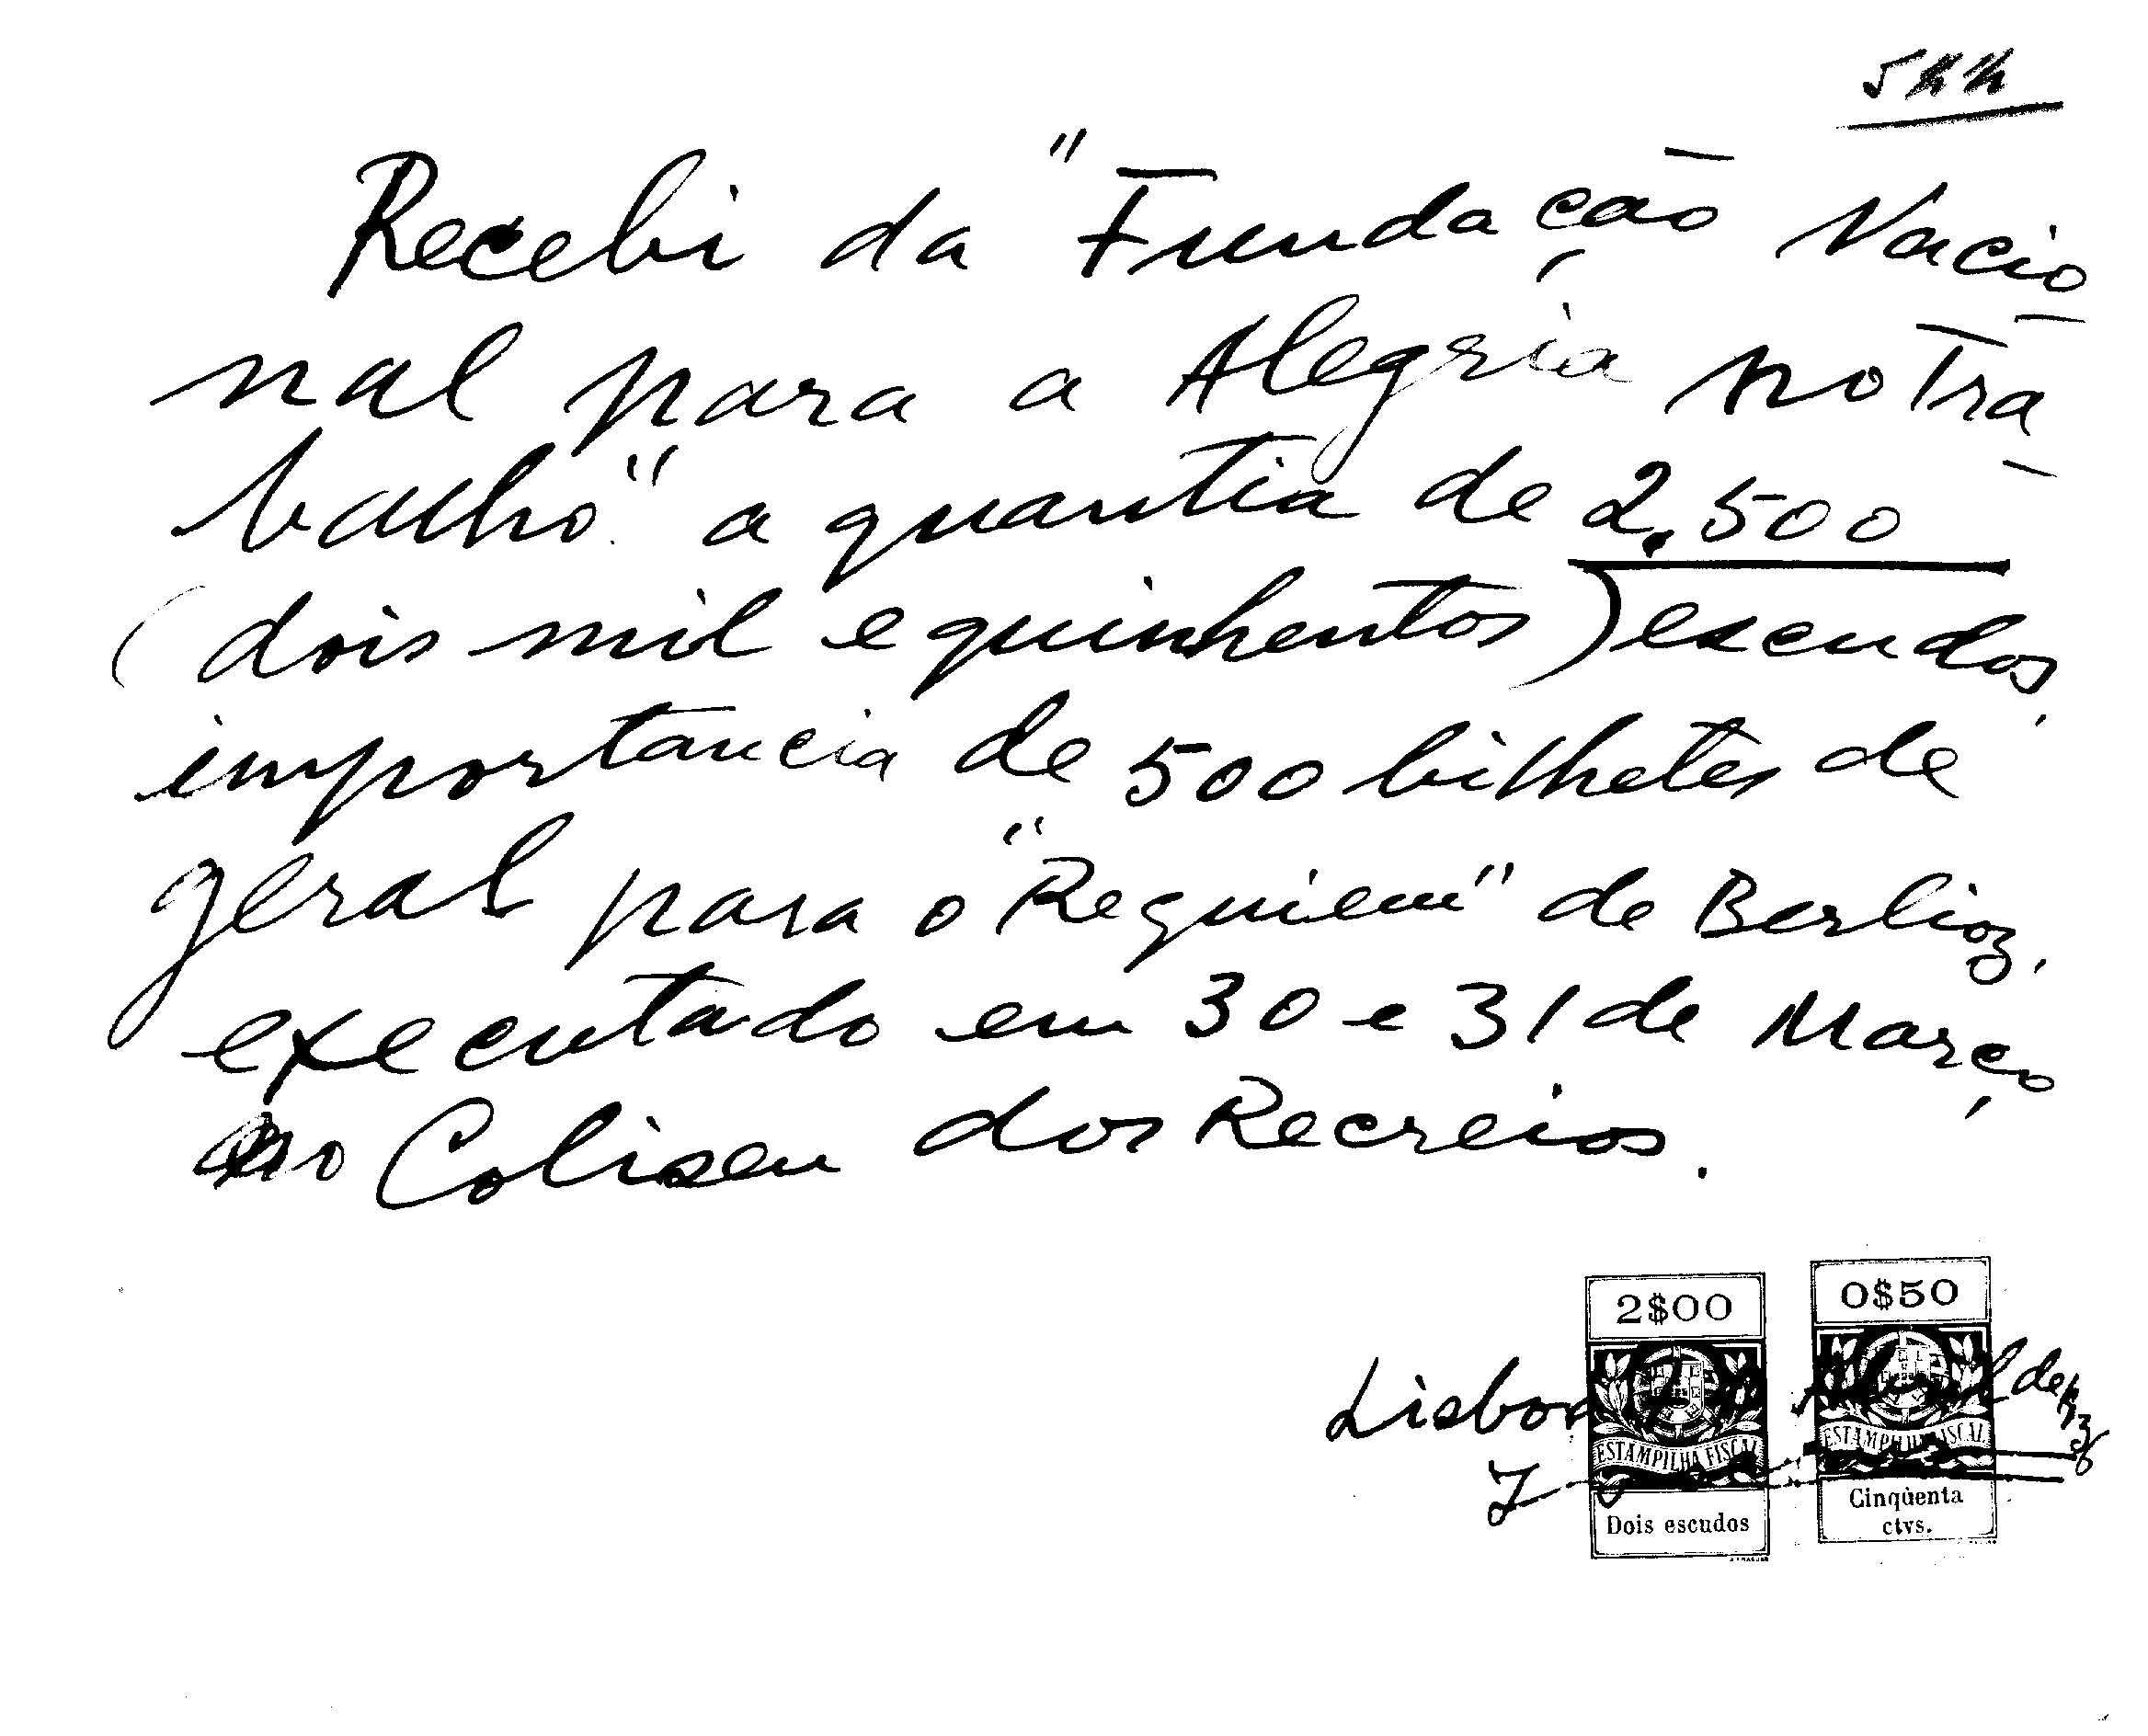 Recebi da "Fundação Nacio
nal para a Alegria no Tra
balho" a quantia de 2.500
(dois mil e quinhentos) escudos,
importancia de 500 bilhetes de
geral para o "Requiem" de Berlioz,
executado em 30 e 31 de Março,
no Coliseu dos Recreios.
2$00 0$50
Lisboa Abril de
ESTAMPILHA FISCAL ESTAMPILHA FISCAL
Dois escudos Cinqüenta
ctvs.